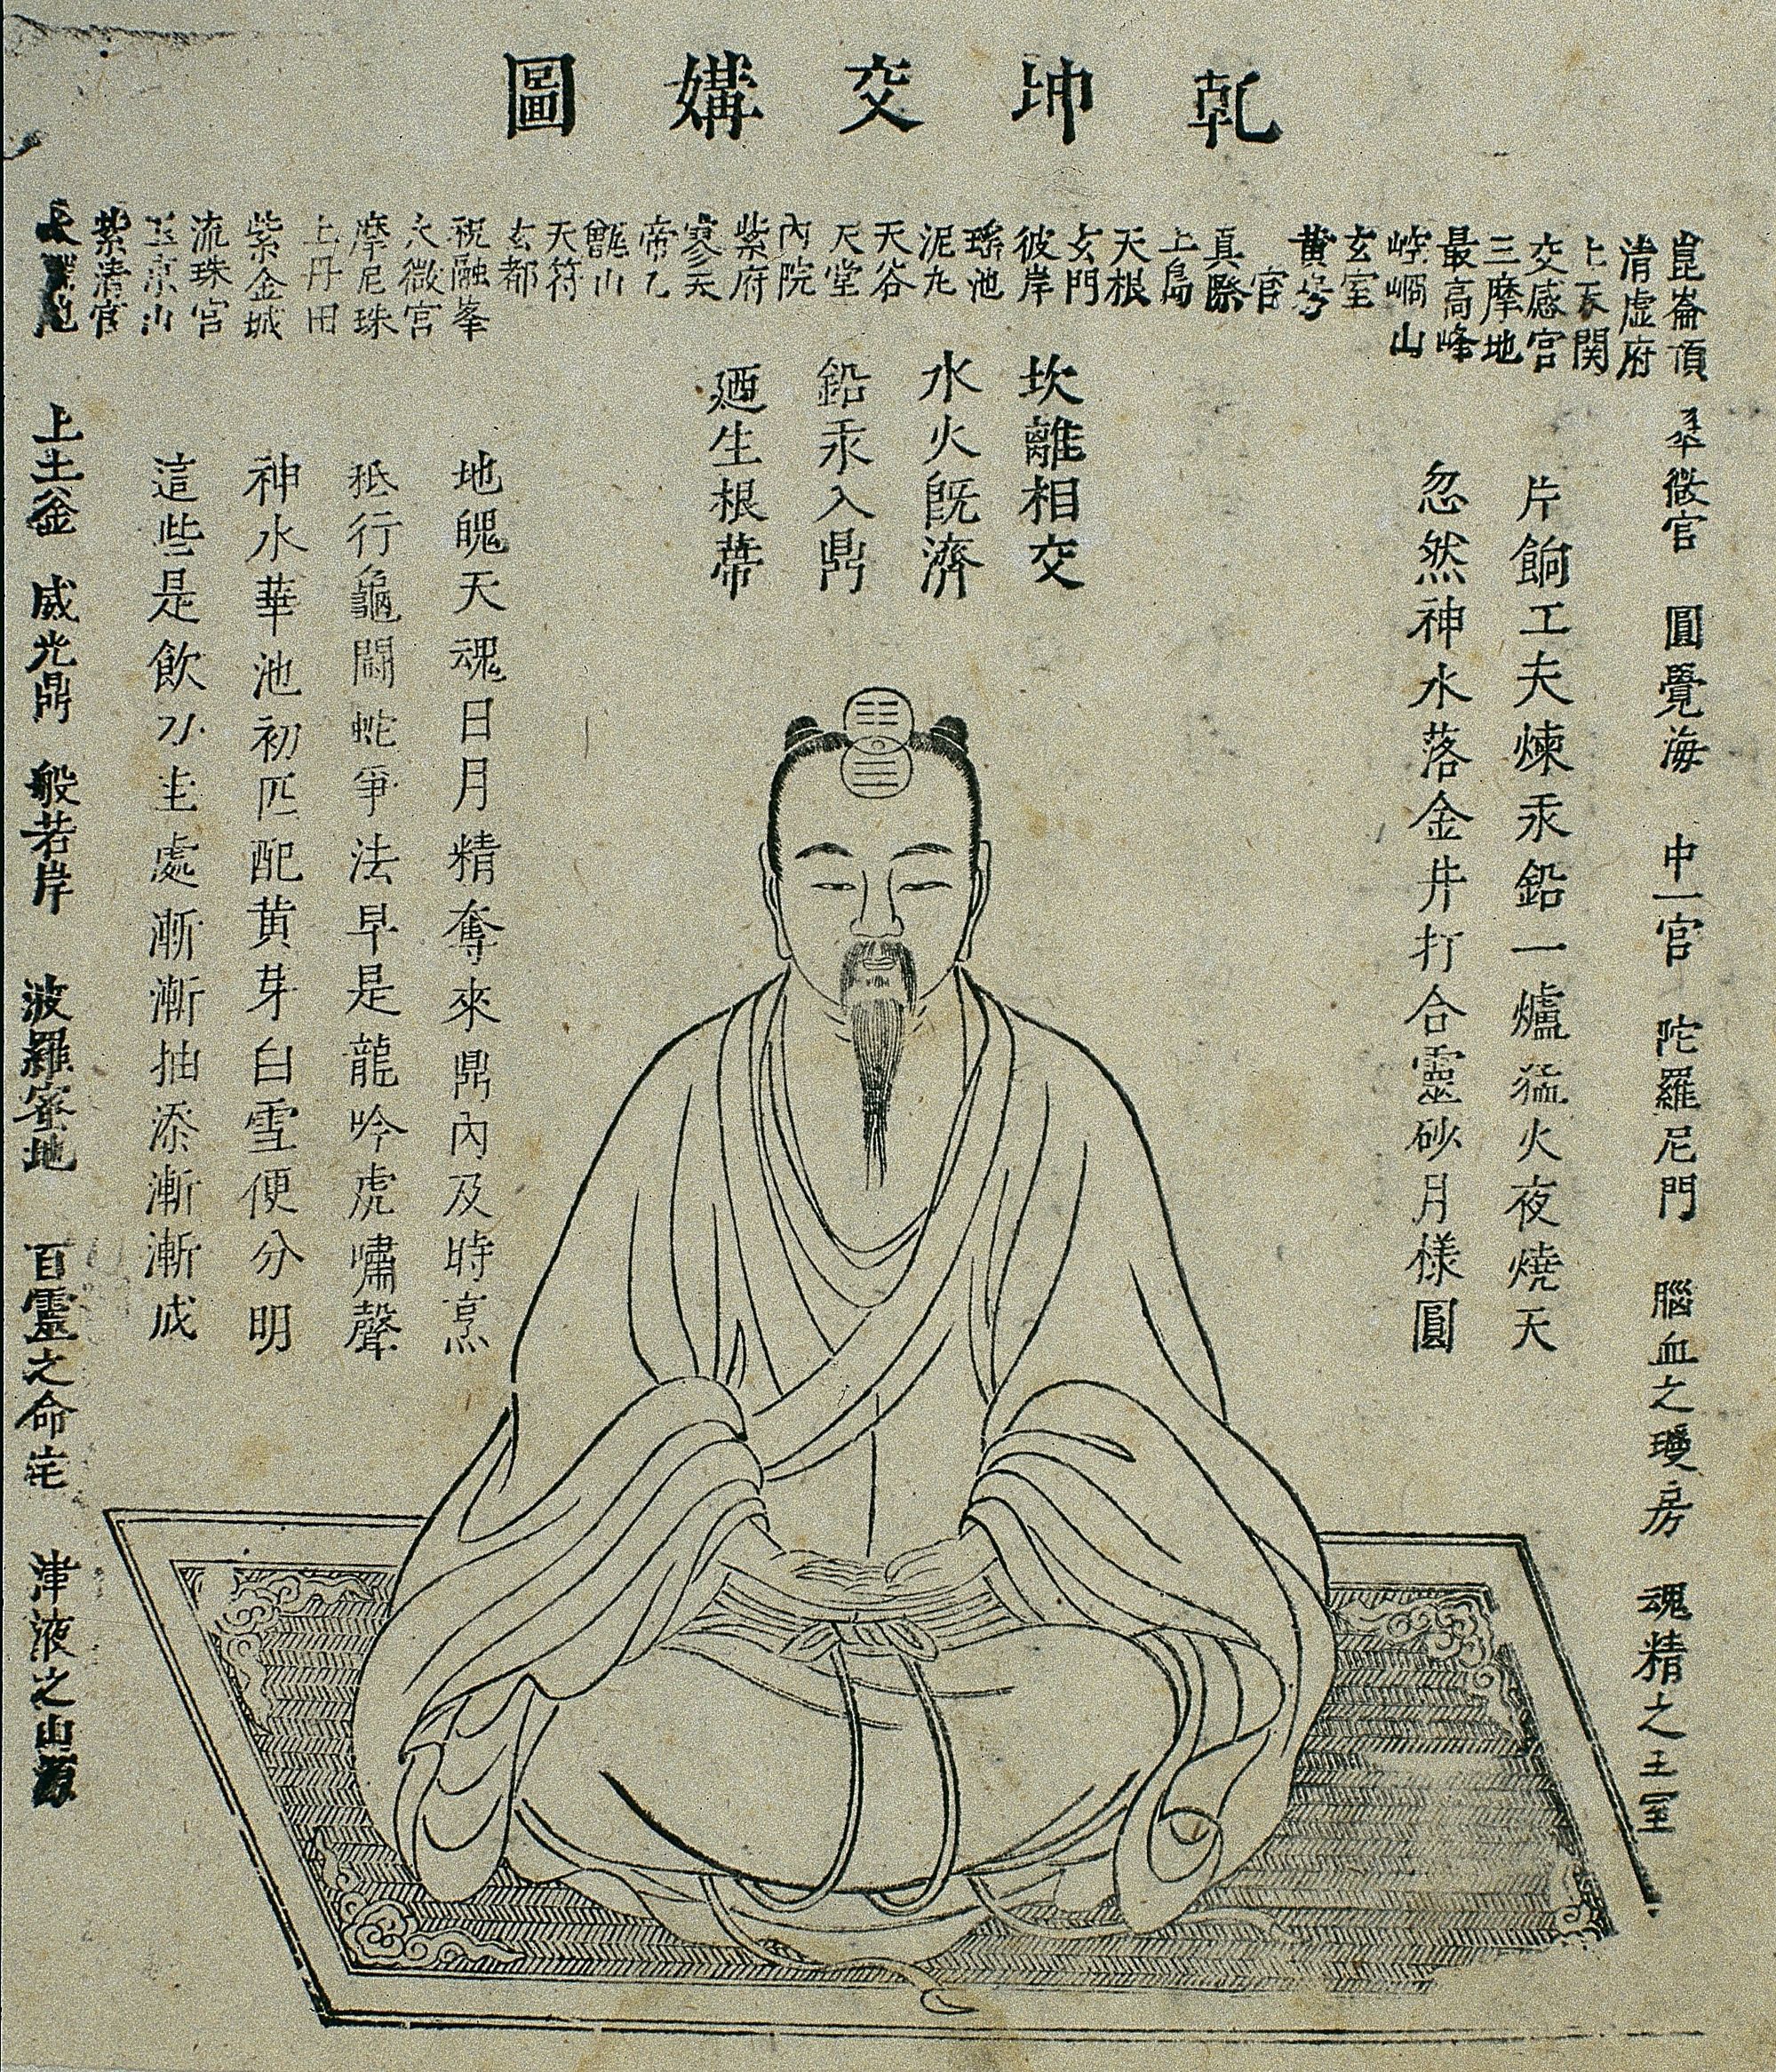 乾坤交媾圖
崑崙頂
清虛府
上天關
交感宮
三摩地
最高峰
崆峒山
玄室
黄房
宮
真際
上島
天根
玄門
彼岸
瑤池
泥丸
天谷
天堂
內院
紫府
寥天
帝乙
甑山
天符
玄都
祝融峯
太微宮
摩尼珠
上丹田
紫金城
流珠宮
玉京山
紫清宮
太淵池
翠微宮
圓覺海
中一宮
陀羅尼門
腦血之瓊房
魂精之玉室
片餉工夫煉汞鉛一爐猛火夜燒天
忽然神水落金井打合靈砂月樣圓
坎離相交
水火既濟
鉛汞入鼎
廼生根蒂
地魄天魂日月精奪來鼎內及時烹
秪行龜鬪蛇爭法早是龍吟虎嘯聲
神水華池初匹配黄芽白雪便分明
這些是飲刀圭處漸漸抽添漸漸成
上土釜
威光鼎
般若岸
波羅蜜地
百靈之命宅
津液之山源